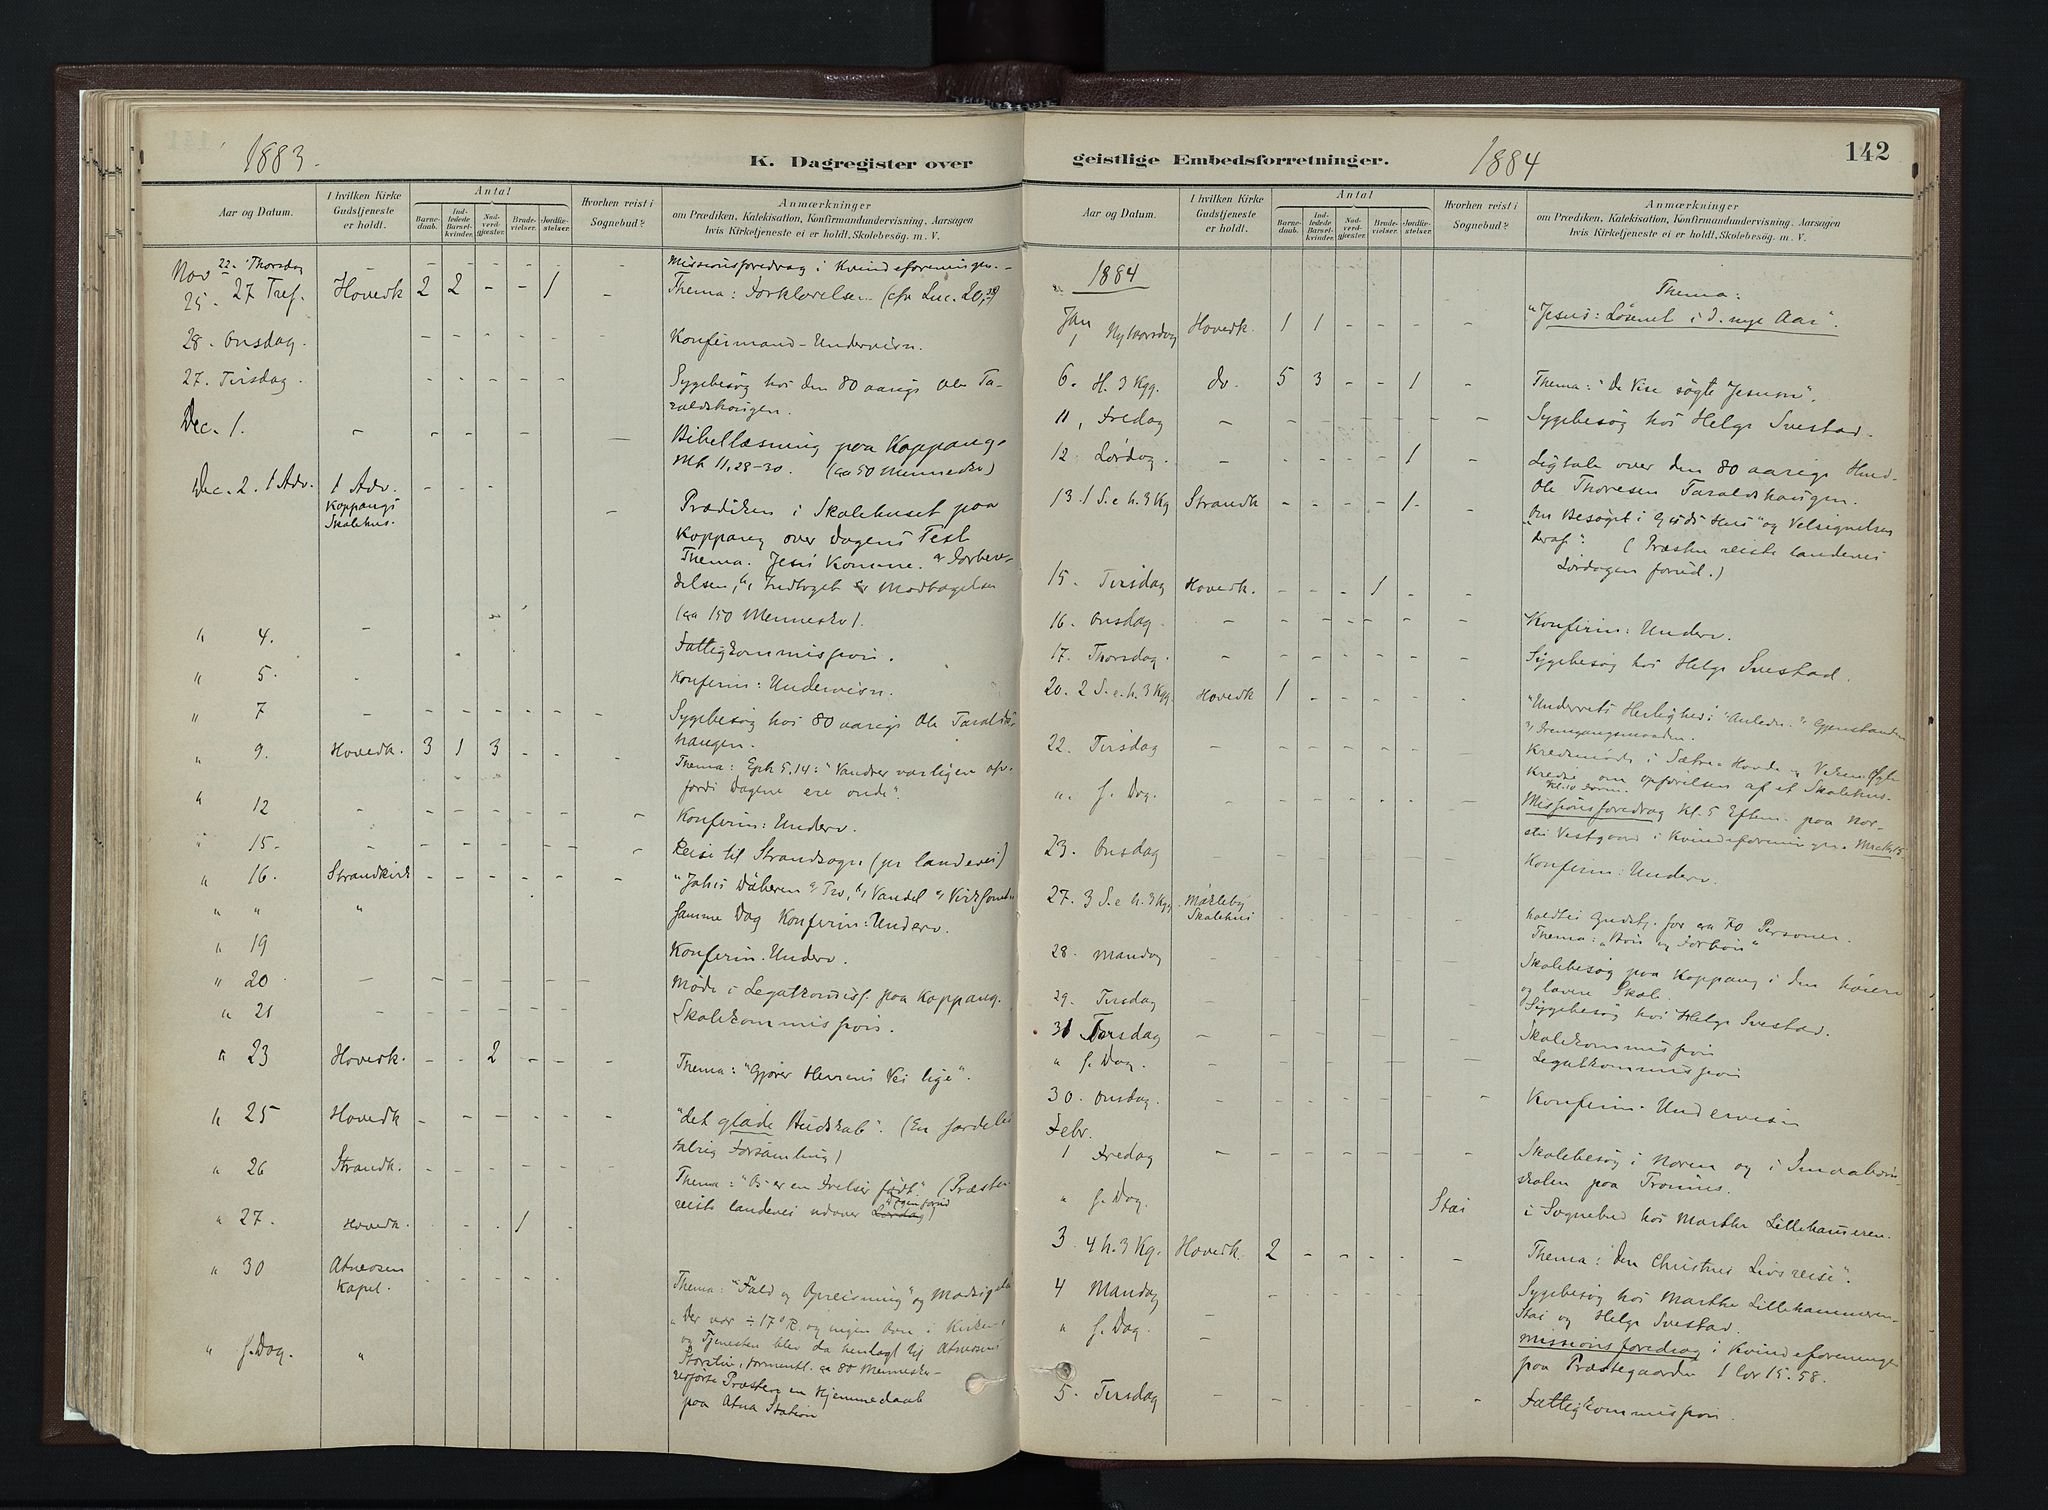 1883.
K. Dagregister over
Aar og Datum.
I hvilken Kirke Gudstjeneste er holdt.
Antal
Barne-daab.
Ind-ledede Barsel-kvinder.
Nad-verd-gjæster.
Brude-vielser.
Jordfæ-stelser.
Hvorhen reist i Sognebud?
Anmærkninger
om Prædiken, Katekisation, Konfirmandundervisning, Aarsagen
hvis Kirketjeneste ei er holdt, Skolebesøg. m. V.
Nov 22. Thorsdag - - - - - - Missionsforedrag i Kvindeforeningen. -
25. 27 Tref. Hovedk 2 2 - - 1 - Thema: Forklarelsen (cfr Luc. 20,
28. Onsdag. - - - - - - Konfirmand-Undervisn.
27. Tirsdag. - - - - - Sygebesøg hos den 80 aarige Ole Ta-
raldshaugen.
Dec. 1. - - - - - - - Bibellæsning paa Koppang.
Mth 11, 28-30. (ca 50 Mennesker)
Dec. 2. 1 Adv. 1 Adv. - - -
Koppangs
Skolehus. - Prædiken i Skolehuset paa
Koppang over Dagens Text
Thema. Jesu Komme. a, Forbere-
delsen, b, Indtoget c, Modtagelsen
(ca 150 Mennesker).
" 4. - Fattigkommission.
" 5. - Konfirm: Undervisn.
" 7 - - - - - - - Sygebesøg hos 80 aarige Ole Taralds-
haugen.
" 9. Hovedk. 3 1 3 - - - Thema: Eph 5.14: "Vandrer varligen
fordi Dagene ere onde".
" 12 - - - - - - - Konfirm: Underv.
" 15. - - - - - - - Reise til Strandsogn (pr landevei)
" 16. Strandkirk - - - - - - "Johs Døberen a, Tro, b, Vandel c,
" " " Samme Dag Konfirm: Underv.
" 19 Konfirm. Underv.
" 20 - - - - - - - Møde i Legatkommiss. paa Koppang.
" 21 - - - - - - - Skolekommission.
" 23 Hovedk. - - 2 - - - Thema: "Gjører Herrens Vei lige".
" 25 Hovedk - - - - - - "det glade Budskab". (En særdeles
talrig Forsamling)
" 26 Strandk. - - - - - Thema: "Os er en Frelser født". (Præsten
reiste landevei udover Lørdag Dagen forud)
" 27. Hovedk. - - - 1 -
" 30 Atneosen
Kapel. - - - - - Thema: "Fald og Opreisning" og
Der var ÷ 17° R. og ingen Ovn i Kirken
og Tjenesten blev da henlagt til Atneosens
ca 80 Mennesker
" s. Dag. " Præsten en Hjemmedaab
paa Atna Station
geistlige Embedsforretninger.
1884
142
Aar og Datum.
I hvilken Kirke Gudstjeneste er holdt.
Antal
Barne-daab.
Ind-ledede Barsel-kvinder.
Nad-verd-gjæster.
Brude-vielser.
Jordfæ-stelser.
Hvorhen reist i Sognebud?
Anmærkninger
om Prædiken, Katekisation, Konfirmandundervisning, Aarsagen
hvis Kirketjeneste ei er holdt, Skolebesøg. m. V.
1884 Thema:
Jan 1 Nytaarsdag Hovedk. 1 1 - - - - "Jesus: Løsenet i d. nye Aar".
6. H. 3 Kgg. do. 5 3 - - 1 - Thema: "De Vise søgte Jesum".
11, Fredag - - - - - - - Sygebesøg hos Helge Svestad.
12 Lørdag. - - - - - 1 - Ligtale over den 80 aarige
Ole Thoresen Taraldshaugen.
13. 1 S. e. h. 3 Kg Strandk - - - - 1. - Om Besøget i Guds Hus" og Velsignelsen
deraf". (Præsten reiste landeveis
Lørdagen forud.)
15. Tirsdag Hovedk. - - - 1 - -
16. Onsdag. - - - - - - - Konfirm: Underv.
17. Thorsdag. - - - - - - - Sygebesøg hos Helge Svestad.
20. 2 S. e. h. 3 Kgg. Hovedk 1 - - - - - "Underets Herlighed: Anledn. Gjenstanden
Fremgangsmaaden.
22. Tirsdag - - - - - - - Kredsmøde i Sætre-Hovde og
Kreds om opførelsen af et Skolehus.
Kl. 10 Form.
". s. Dag. - - - - - - Missionsforedrag Kl. 5 Efterm. paa Nor-
dre Vestgaard i Kvindeforeningen.
23. Onsdag - - - - - - - Konfirm: Underv.
27. 3 S. e. h. 3 Kgg Mørkeby
Skolehus - - - - - - holdtes Gudstj. for ca 70 Personer.
Thema: "Bøn og Forbøn"
28. Mandag - - - - - - - Skolebesøg paa Koppang i den høiere
og lavere Skole.
29. Tirsdag - - - - - - - Sygebesøg hos Helge Svestad.
31 Torsdag - - - - - - - Skolekommission
" s. Dag. - - - - - - - Legatkommission
30. Onsdag. - - - - - - - Konfirm. Undervisn
Febr.
1 Fredag - - - - - - - Skolebesøg i Noren og i Smaabørns-
skolen paa Trønnes.
" s. Dag. - Stai i Sognebud hos Marthe Lillehammeren.
3. 4 h. 3 Kg. Hovedk. 2 - - - - - Thema: "Den Christnes Livsreise".
4 Mandag - - - - - - Sygebesøg hos Marthe Lillehammeren
Stai og Helge Svestad.
" s. Dag. - Missionsforedrag i Kvindeforeningen
paa Præstegaarden 1 Cor 15. 58.
5. Tirsdag - - - - - - - Fattigkommission.